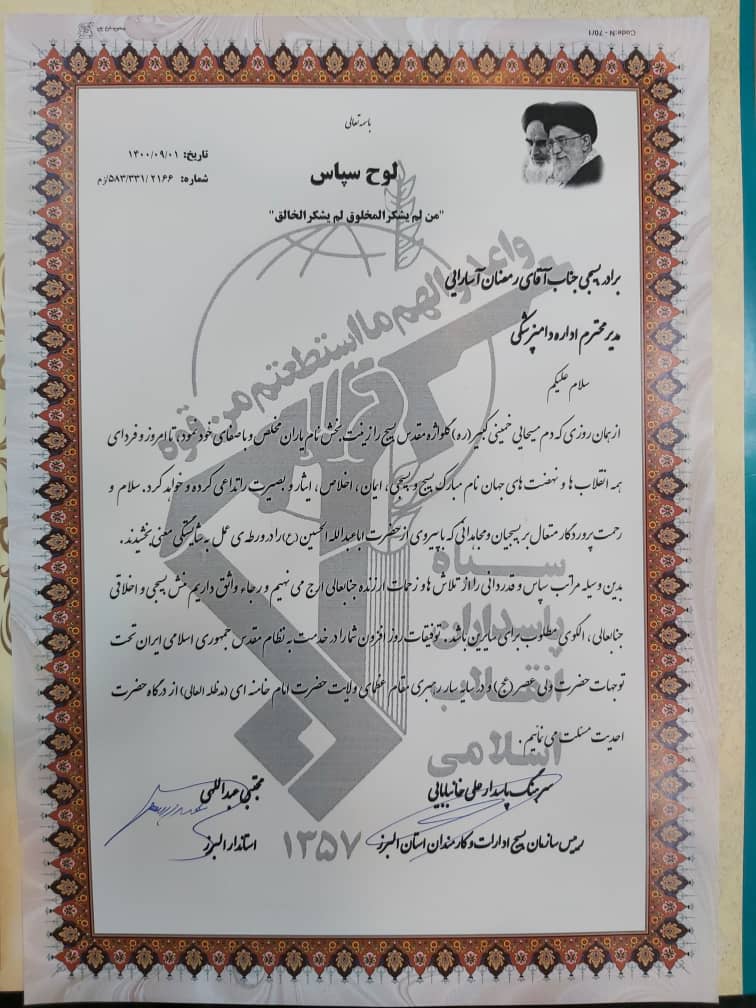 Code:N - 70/1
باسمه تعالی
تاریخ: ۱۴۰۰/۰۹/۰۱
لوح سپاس
شماره: ۵۸۳/۳۳۱/۲۱۶۶/زم
"من لم یشکر المخلوق لم یشکر الخالق"
واعدوا لهم ما استطعتم من قوه
برادر بسیجی جناب آقای رمضان آسارایی
مدیر محترم اداره دامپزشکی
سلام علیکم
از همان روزی که دم مسیحایی خمینی کبیر (ره) گلواژه مقدس بسیج را زینت بخش نام یاران مخلص و باصفای خود نمود، تا امروز و فردای
همه انقلاب ها و نهضت های جهان نام مبارک بسیج و بسیجی، ایمان، اخلاص، ایثار و بصیرت را تداعی کرده و خواهد کرد. سلام و
رحمت پروردگار متعال بر بسیجیان و مجاهدانی که با پیروی از حضرت اباعبدالله الحسین (ع) را در ورطه ی عمل به شایستگی معنی بخشیدند.
بدین وسیله مراتب سپاس و قدردانی را از تلاش ها و زحمات ارزنده جنابعالی ارج می نهیم و رجاء واثق داریم منش بسیجی و اخلاقی
جنابعالی، الگوی مطلوب برای سایرین باشد. توفیقات روز افزون شما را در خدمت به نظام مقدس جمهوری اسلامی ایران تحت
توجهات حضرت ولی عصر (عج) و در سایه سار رهبری مقام عظمای ولایت حضرت امام خامنه ای (مدظله العالی) از درگاه حضرت
احدیت مسئلت می نمائیم.
سپاه
پاسداران
انقلاب
اسلامی
سرهنگ پاسدار علی خانبابایی
مجتبی عبداللهی
رییس سازمان بسیج ادارات و کارمندان استان البرز
۱۳۵۷
استاندار البرز